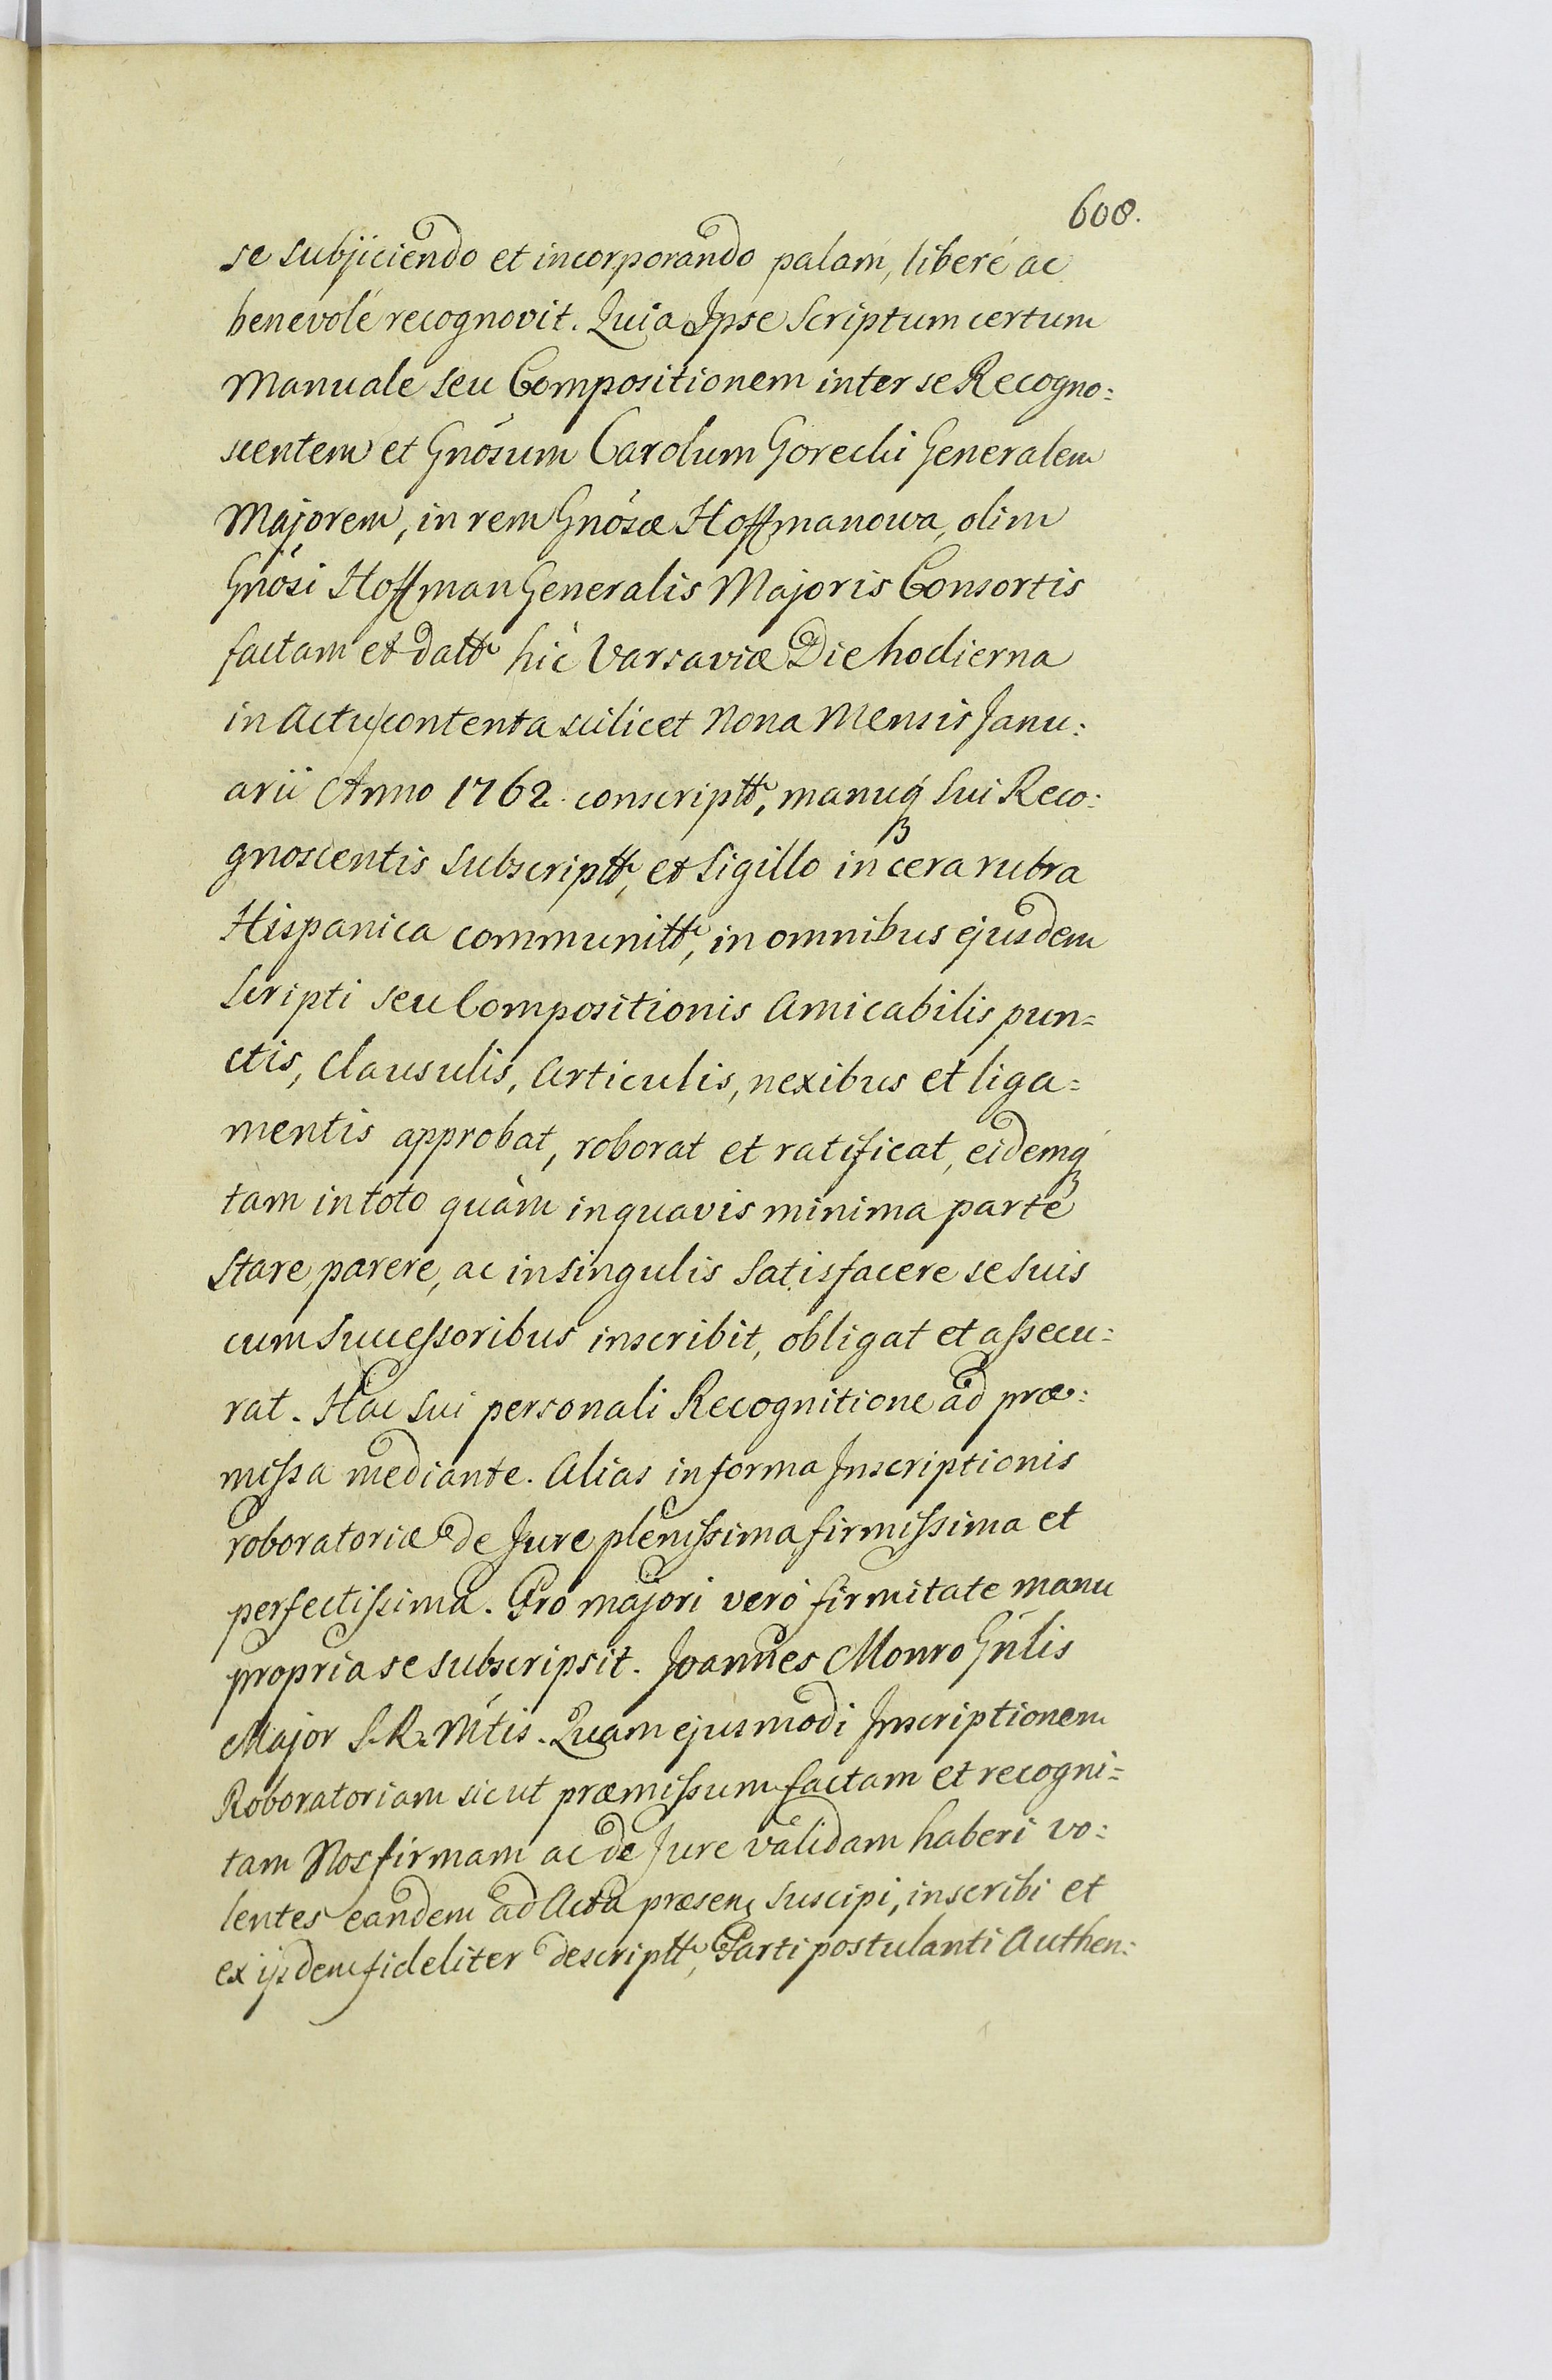 608.
se subjiciendo et incorporando palam, liberè ac
benevolè recognovit. Quia Ipse Scriptum certum
Manuale seu Compositionem inter se Recogno:
scentem et Gnösum Carolum Gorecki Generalem
Majorem, in rem Gnösæ Hoffmanowa, olim
Gnösi Hoffman Generalis Majoris Consortis
factam et datt hic Varsaviæ Die hodierna
in Actu contenta scilicet Nona Mensis Janu:
arii Anno 1762. conscriptt, manuq3 Sui Reco:
gnoscentis Subscriptt, et Sigillo in cera rubra
Hispanica communitt, in omnibus ejusdem
Scripti seu Compositionis Amicabilis pun=
ctis, Clausulis, Articulis, nexibus et liga=
mentis approbat, roborat et ratificat, eidemq3
tam in toto quàm in quavis minima parte
Stare, parere, ac in singulis Satisfacere se suis
cum Successoribus inscribit, obligat et assecu:
rat. Hac Sui personali Recognitione ad præ:
missa mediante. Alias in forma Inscriptionis
roboratoriæ de Jure plenissima, firmissima et
perfectissima. Pro majori verò firmitate manu
propria se subscripsit. Joannes Monro Gnlis
Major S. R. Mtis. Quam ejusmodi Inscriptionem
Roboratoriam sicut præmissum factam et recogni=
tam Nos firmam ac de Jure validam haberi vo:
lentes eandem ad Acta præsenz Suscipi, inscribi et
ex ijsdem fideliter descriptt, Parti postulanti Authen: